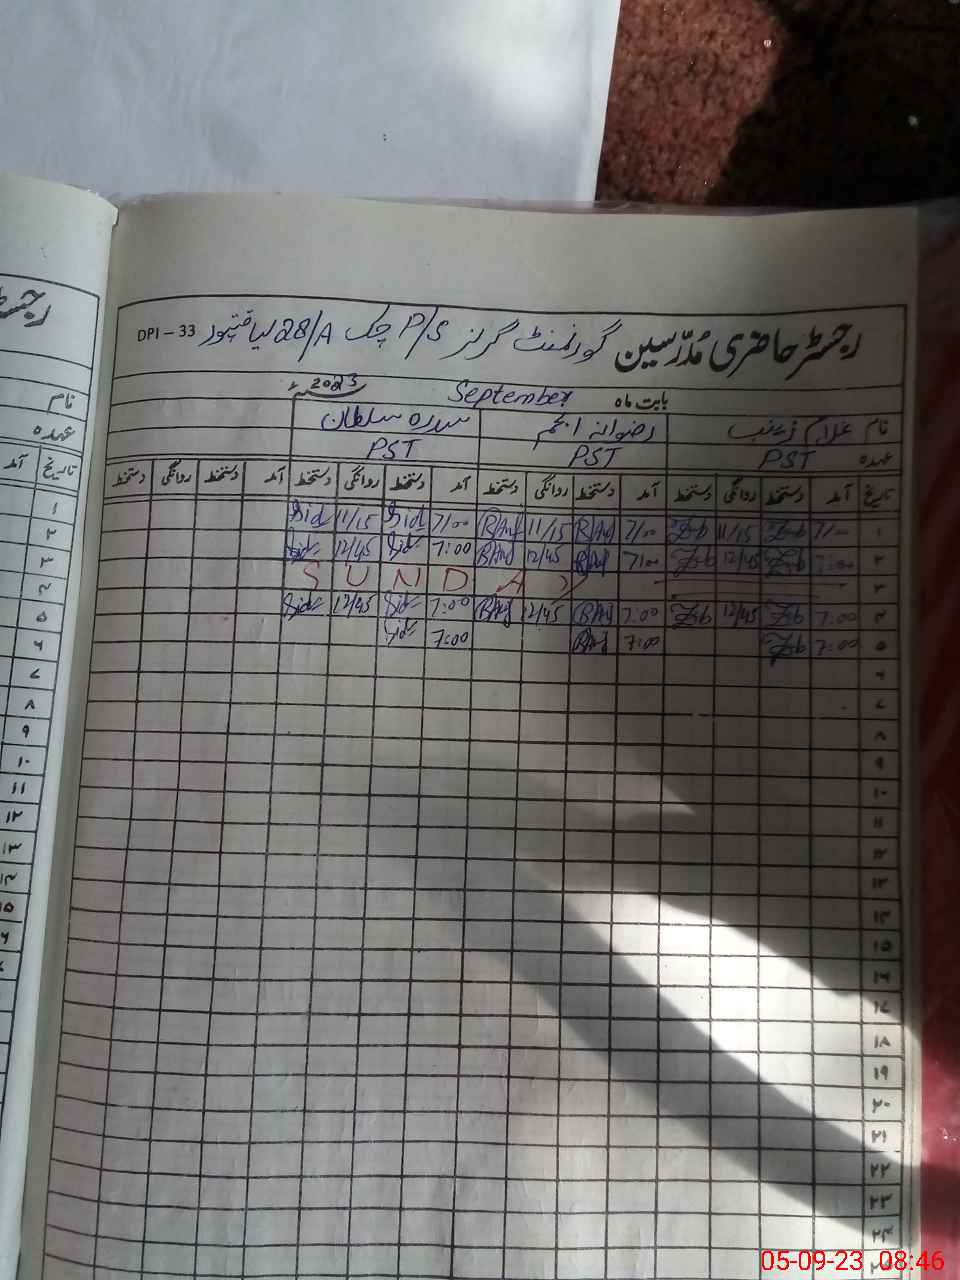 رجسٹر حاضری مدرسین گورنمنٹ گرلز P/S چک 28/A لیاقتپور DPI – 33
بابت ماہ September 2023ء
نام زینب رضوانہ انجم سدرہ سلطان
عہدہ PST PST PST
تاریخ آمد دستخط روانگی دستخط آمد دستخط روانگی دستخط آمد دستخط روانگی دستخط آمد دستخط روانگی دستخط
۱ 7/00 Zb 11/15 Zb 7/00 RAnj 11/15 RAnj 7/00 Sid 11/15 Sid
۲ 7:00 Zb 12/45 Zb 7/00 RAnj 12/45 RAnj 7:00 Sid 12/45 Sid
۳ SUNDAY
۴ 7:00 Zb 12/45 Zb 7:00 RAnj 12/45 RAnj 7:00 Sid 12/45 Sid
۵ 7:00 Zb 7:00 RAnj 7:00 Sid
۶
۷
۸
۹
۱۰
۱۱
۱۲
۱۳
۱۴
۱۵
۱۶
۱۷
۱۸
۱۹
۲۰
۲۱
۲۲
۲۳
۲۴
۲۵
نام
عہدہ
تاریخ آمد
۱
۲
۳
۴
۵
۶
۷
۸
۹
۱۰
۱۱
۱۲
۱۳
۱۴
۱۵
05-09-23 08:46